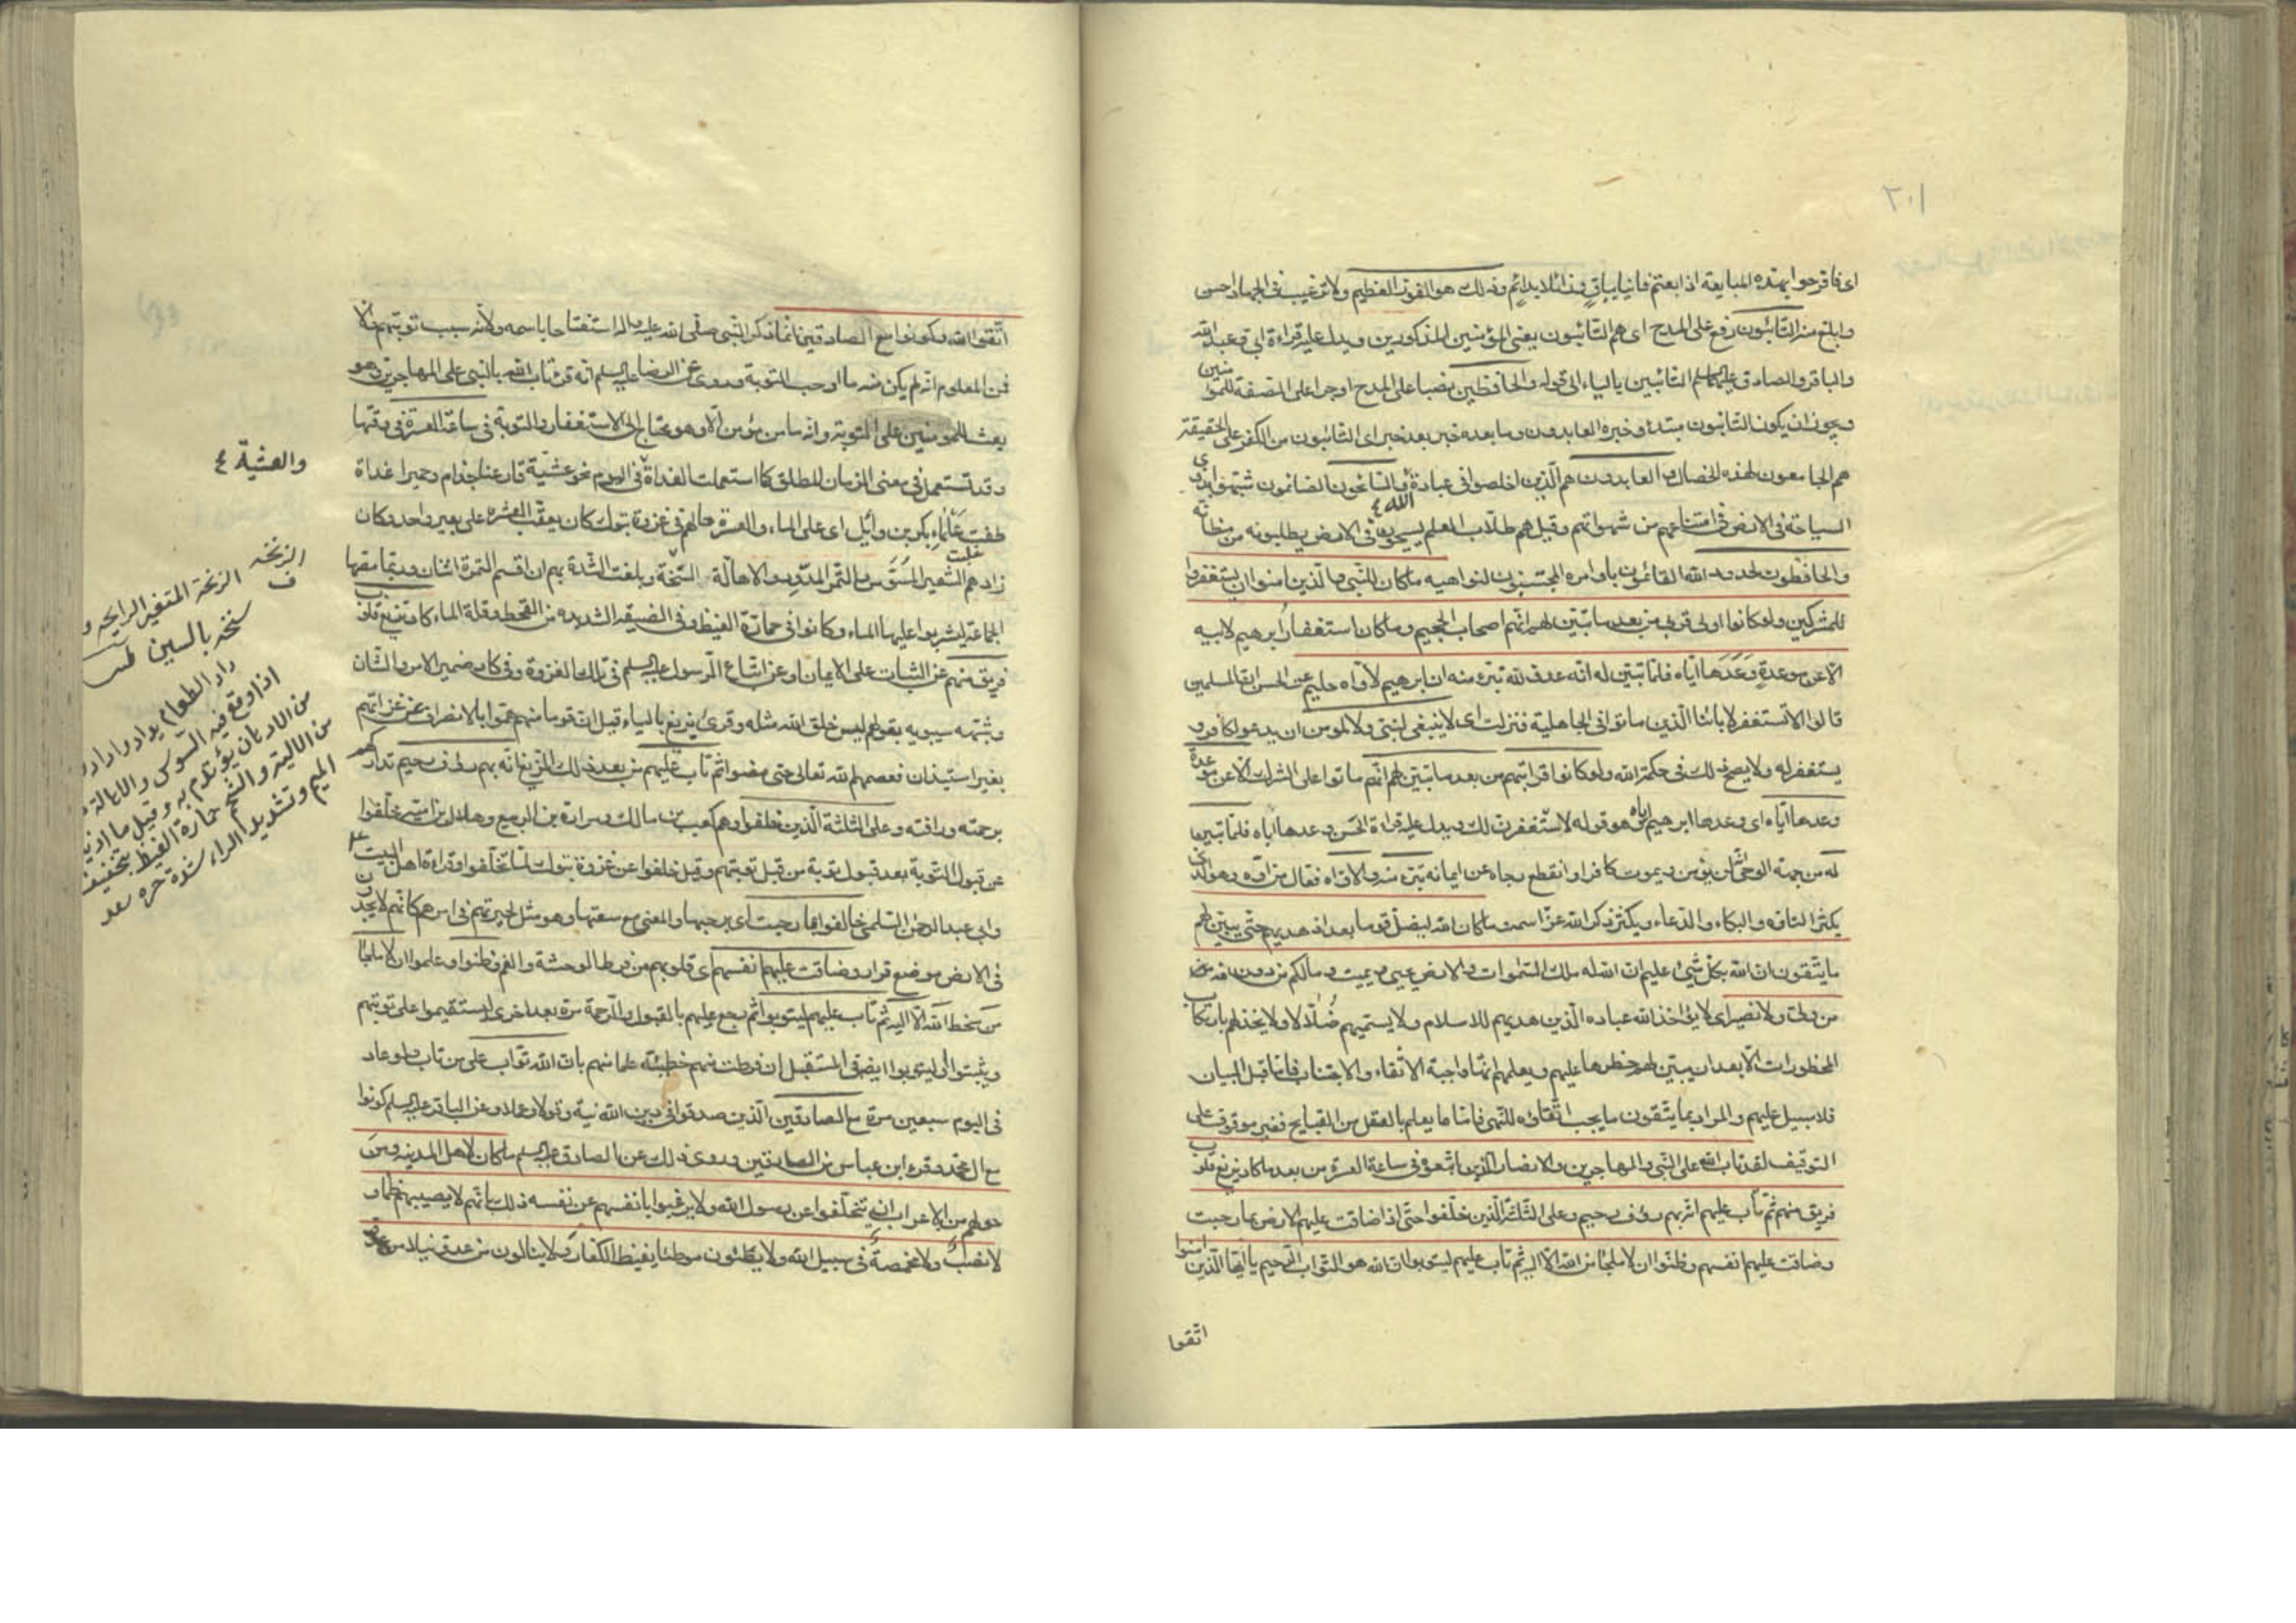 ٢٠١
اى فافرحوا بهذه المبايعة اذ ابعتم فانيا بباق وزائلا بدائم وذلك هو الفوز العظيم ولا ترغيب فى الجهاد احسن
وابلغ منه التائبون رفع على المدح اى هم التائبون يعنى المؤمنين المذكورين ويدل عليه قراءة ابى وعبد الله
والباقر والصادق عليهما السلم التائبين بالياء الى قوله والحافظين نصبا على المدح او جرا على الصفة للمؤمنين
ويجوز ان يكون التائبون مبتدء وخبره العابدون وما بعده خبر بعد خبر اى التائبون من الكفر على الحقيقة
هم الجامعون لهذه الخصال والعابدون هم الذين اخلصوا فى عبادة الله والسائحون الصائمون شبهوا بذوى
السياحة فى الارض فى امتناعهم من شهواتهم وقيل هم طلاب العلم يسيحون فى الارض يطلبونه من مظانه
والحافظون لحدود الله القائمون باوامره المجتنبون لنواهيه ما كان للنبى والذين امنوا ان يستغفروا
للمشركين ولو كانوا اولى قربى من بعد ما تبين لهم انهم اصحاب الجحيم وما كان استغفار ابرهيم لابيه
الا عن موعدة وعدها اياه فلما تبين له انه عدو لله تبرء منه ان ابرهيم لاواه حليم عن الحسن ان المسلمين
قالوا الا نستغفر لابائنا الذين ماتوا فى الجاهلية فنزلت اى لا ينبغى لنبى ولا لمؤمن ان يدعو لكافر و
يستغفر له ولا يصح ذلك فى حكمة الله ولو كانوا قرابتهم من بعد ما تبين لهم انهم ماتوا على الشرك الا عن موعدة
وعدها اياه اى وعدها ابرهيم اباه هو قوله لاستغفرن لك ويدل عليه قراءة الحسن وعدها اباه فلما تبين
له من جهة الوحى انه لن يؤمن ويموت كافرا وانقطع رجاه عن ايمانه تبرء منه والاواه فعال من اوه وهو الذى
يكثر التاوه والبكاء والدعاء ويكثر ذكر الله عز اسمه وما كان الله ليضل قوما بعد اذ هديهم حتى يبين لهم
ما يتقون ان الله بكل شىء عليم ان الله له ملك السموات والارض يحيى ويميت وما لكم من دون الله
من ولى ولا نصير اى لا يؤاخذ الله عباده الذين هديهم للاسلام ولا يسميهم ضلالا ولا يخذلهم بارتكاب
المحظورات الا بعد ان يبين لهم حظرها عليهم ويعلمهم انها واجبة الاتقاء والاجتناب فاما قبل البيان
فلا سبيل عليهم والمراد بما يتقون ما يجب اتقاؤه للنهى فاما ما يعلم بالعقل من القبايح فغير موقوف على
التوقيف لقد تاب الله على النبى والمهاجرين والانصار الذين اتبعوه فى ساعة العسرة من بعد ما كاد يزيغ قلوب
فريق منهم ثم تاب عليهم انه بهم رؤف رحيم وعلى الثلثة الذين خلفوا حتى اذا ضاقت عليهم الارض بما رحبت
وضاقت عليهم انفسهم وظنوا ان لا ملجا من الله الا اليه ثم تاب عليهم ليتوبوا ان الله هو التواب الرحيم يا ايها الذين امنوا
اتقوا
اتقوا الله وكونوا مع الصادقين انما ذكر النبى صلى الله عليه واله استفتاحا باسمه ولانه سبب توبتهم والا
فمن المعلوم انه لم يكن منه ما اوجب التوبة وروى عن الرضا عليه السلم انه قرء لقد تاب الله بالنبى على المهاجرين وهو
بعث للمومنين على التوبة وانه ما من مؤمن الا وهو محتاج الى الاستغفار والتوبة فى ساعة العسرة فى وقتها
وقد تستعمل فى معنى الزمان المطلق كما استعملت الغداة واليوم نحو عشية قارعنا جذام وحميرا غداة
والعشية ٤
طفت علماء بكر بن وائل اى على الماء والعسرة حالهم فى غزوة تبوك كان يعقب العشرة على بعير واحد وكان
زادهم الشعير المسوس والتمر المدود والاهالة السنخة وبلغت الشدة بهم ان اقتسم التمرة اثنان وربما مصها
الجماعة ليشربوا عليها الماء وكانوا فى حمارة القيظ وفى الضيقة الشديدة من القحط وقلة الماء كاد تزيغ قلوب
فريق منهم عن الثبات على الايمان او عن اتباع الرسول عليه السلم فى تلك الغزوة وفى كاد ضمير الامر والشان
وشبهه سيبويه بقولهم ليس خلق الله مثله وقرئ يزيغ بالياء قيل ان قوما منهم هموا بالانصراف عن غزاتهم
بغير استيذان فعصمهم الله تعالى حتى مضوا ثم تاب عليهم من بعد ذلك الزيغ انه بهم رؤف رحيم تداركهم
برحمته ورافته وعلى الثلثة الذين خلفوا وهم كعب بن مالك ومرارة بن الربيع وهلال بن امية خلفوا
عن قبول التوبة بعد قبول توبة من قبل توبتهم وقيل خلفوا عن غزوة تبوك لما تخلفوا وقراءة اهل البيت عليهم
وابى عبد الرحمن السلمى خالفوا بما رحبت اى برحبها والمعنى مع سعتها وهو مثل لحيرتهم فى امرهم كانهم لا يجدون
فى الارض موضع قرار وضاقت عليهم انفسهم اى قلوبهم من فرط الوحشة والغم وظنوا وعلموا ان لا ملجا
من سخط الله الا اليه ثم تاب عليهم ليتوبوا ثم رجع عليهم بالقبول والرحمة مرة بعد اخرى ليستقيموا على توبتهم
ويثبتوا او ليتوبوا ايضا فى المستقبل ان فرطت منهم خطيئة علما منهم بان الله تواب على من تاب ولو عاد
فى اليوم سبعين مرة مع الصادقين الذين صدقوا فى دين الله نية وقولا وعملا وعن الباقر عليه السلم كونوا
مع ال محمد وقرء ابن عباس من الصادقين وروى ذلك عن الصادق عليه السلم ما كان لاهل المدينة ومن
حولهم من الاعراب ان يتخلفوا عن رسول الله ولا يرغبوا بانفسهم عن نفسه ذلك بانهم لا يصيبهم ظما و
لا نصب ولا مخمصة فى سبيل الله ولا يطئون موطئا يغيظ الكفار ولا ينالون من عدو نيلا
الزنخة
الزنخة المتغير الرايحة و
سنخه بالسين
داد الطعام يداد واداد
اذا وقع فيه السوس والاهالة
من الادهان يؤتدم به وقيل ما اذيب
من الالية والشحم حمارة القيظ بتخفيف
الميم وتشديد الراء شدة حره